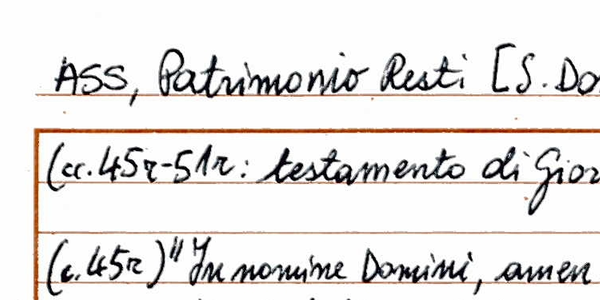 ASS, Patrimonio Resti [S. Do
(cc. 45r-51r: testamento di Gior
(c. 45r) "In nomine Domini, amen